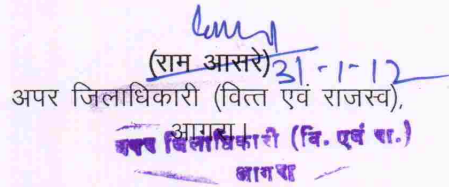 (राम आसरे) 31-1-12
अपर जिलाधिकारी (वित्त एवं राजस्व),
आगरा।
अपर जिलाधिकारी (वि. एवं रा.)
आगरा